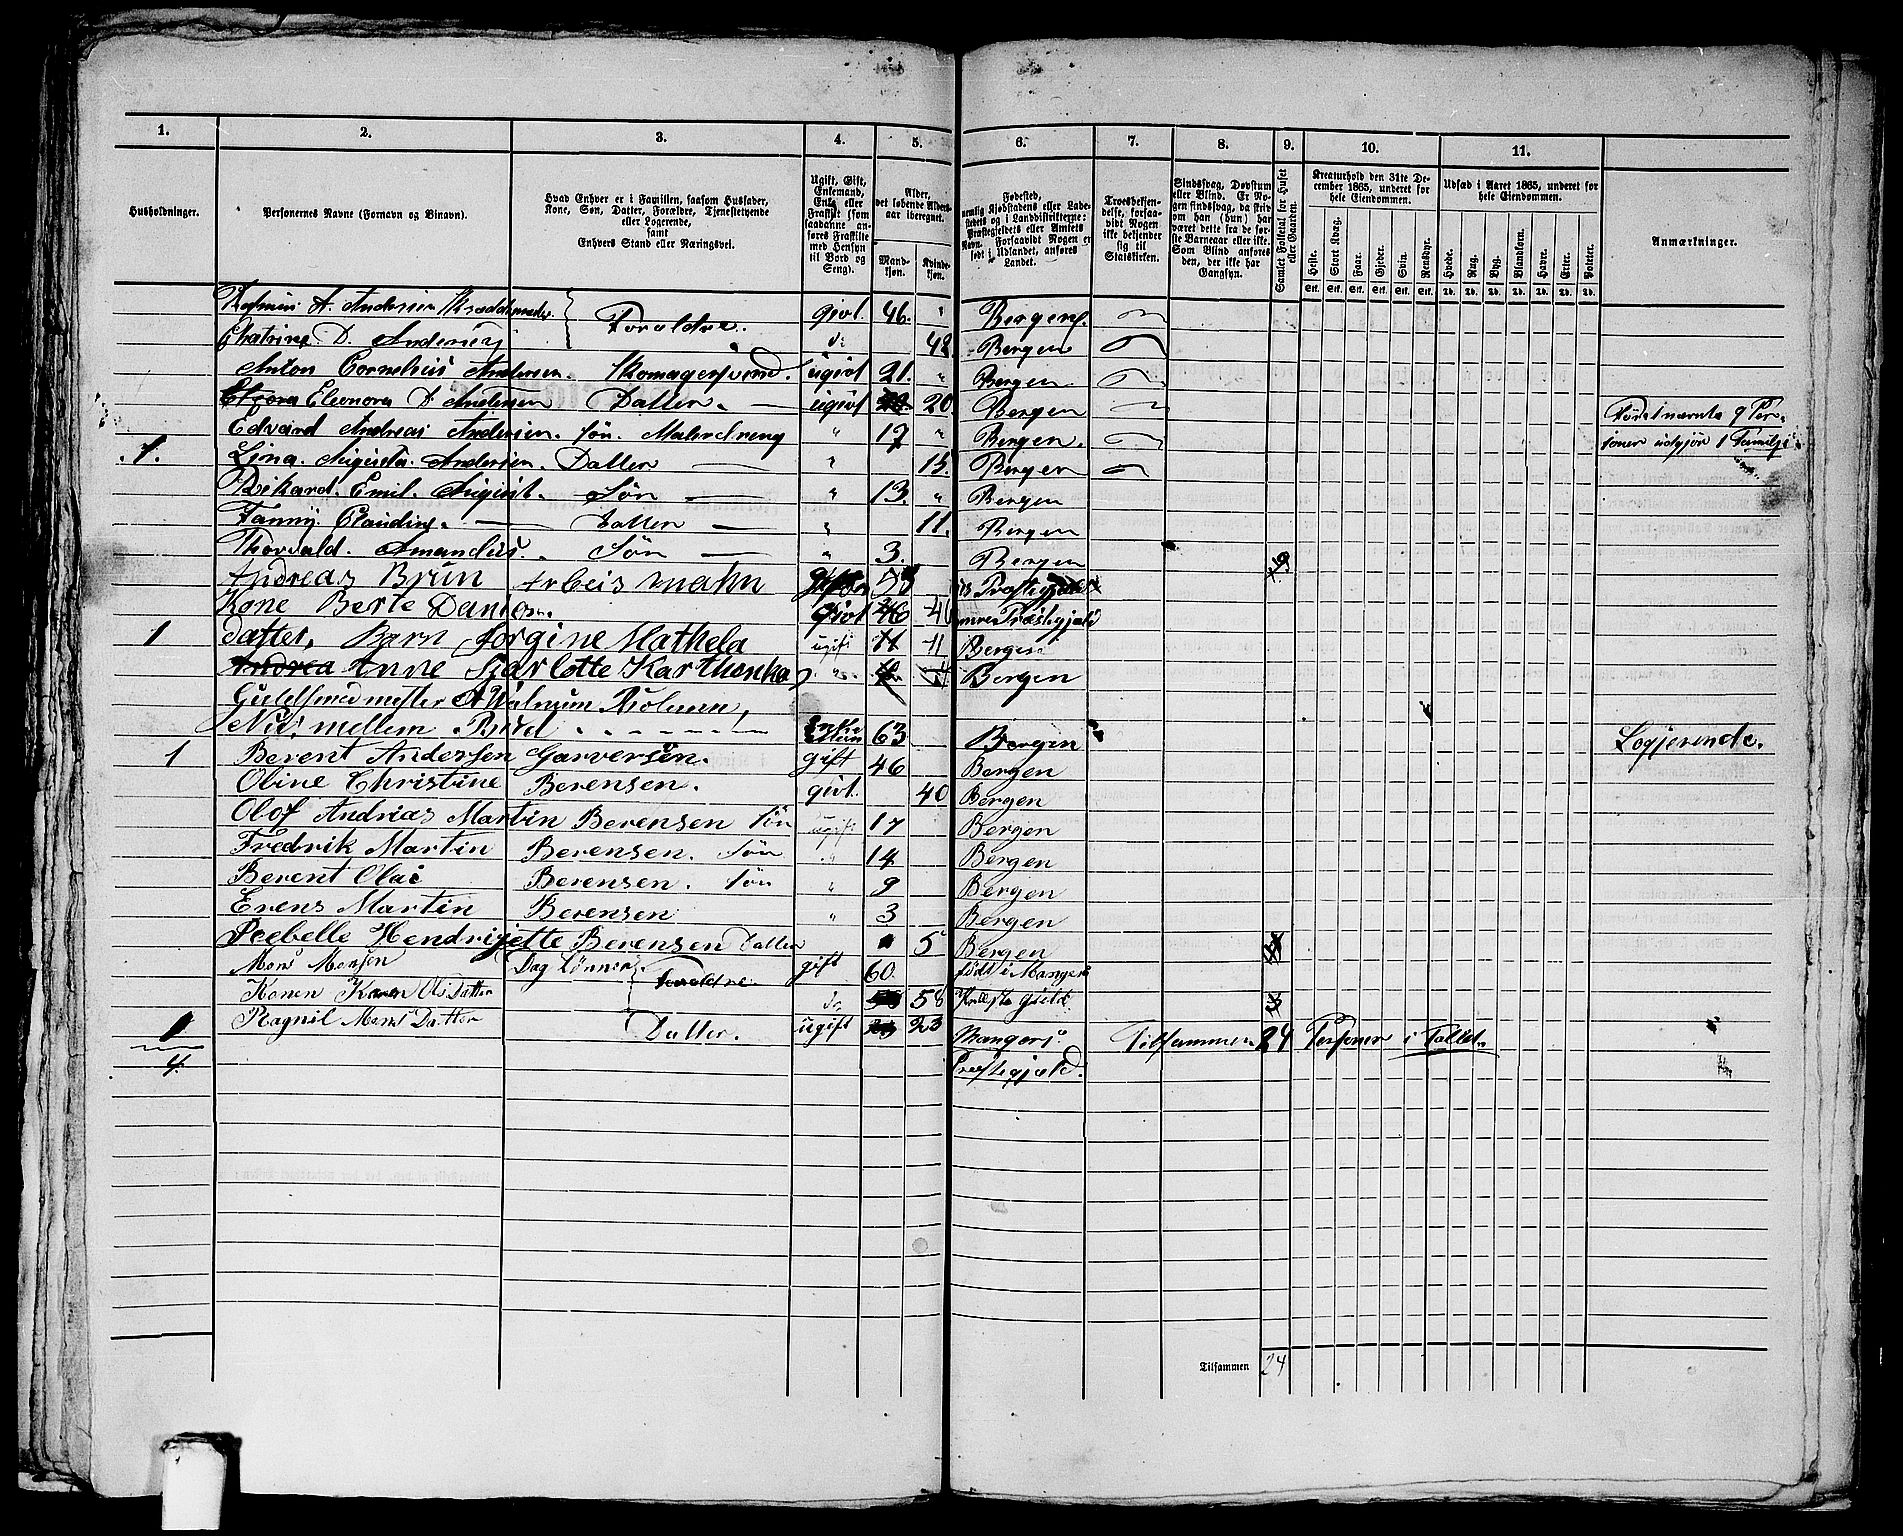 1. 2. 3. 4. 5. 6. 7. 8. 9. 10. 11.
Husholdninger.
Personernes Navne (Fornavn og Binavn).
Hvad Enhver er i Familien, saasom Husfader,
Kone, Søn, Datter, Forældre, Tjenestetyende
eller Logerende,
samt
Enhvers Stand eller Næringsvei.
Ugift, Gift,
Enkemand,
Enke eller
Fraskilt (som
saadanne an-
føres Fraskilte
med Hensyn
til Bord og
Seng).
Alder,
det løbende Alders-
aar iberegnet.
Mand-
kjøn.
Kvinde-
kjøn.
Fødested,
nemlig Kjøbstadens eller Lade-
stedets og i Landdistrikterne:
Præstegjeldets eller Amtets
Navn. Forsaavidt Nogen er
født i Udlandet, anføres
Landet.
Troesbekjen-
delse, forsaa-
vidt Nogen
ikke bekjender
sig til
Statskirken.
Sindssvag, Døvstum
eller Blind. Er No-
gen sindssvag, da skriv
om han (hun) har
været dette fra de før-
ste Barneaar eller ikke.
Som Blind anføres
den, der ikke har
Gangsyn.
Samlet Folketal for Huset
eller Gaarden.
Kreaturhold den 31te De-
cember 1865, underet for
hele Eiendommen.
Heste. Stort Kvæg. Faar. Gjeder. Svin. Rensdyr.
Stk. Stk. Stk. Stk. Stk. Stk.
Udsæd i Aaret 1865, underet for
hele Eiendommen.
Hvede. Rug. Byg. Blandkorn. Havre. Erter. Poteter.
Td. Td. Td. Td. Td. Td. Td.
Anmærkninger.
A. Andersen Forældre. givt 46. " Bergen.
Chatrine D. Andersen do 42. Bergen
Anton Cornelius Andersen. Skomagersvend. ugivt 21. " Bergen
Eleonora D Andersen Datter. ugivt 20. Bergen
Edvard Andreas Andersen. Søn. Malerdreng " 17 " Bergen.
Førstnævnte 9 Per-
soner udgjør 1 Familje
1. Lina. Augusta. Andersen. Datter " 15 Bergen
Rikard. Emil. August. Søn " 13. " Bergen
Fanny. Claudine. Datter " 11. Bergen
Thorvald. Amandus. Søn " 3. Bergen 9
Andreas Brun Arbeis mahn
Kone Berte Givt 46 Præstegjeld
1 Datter, Jorgine Mathela ugift 11 Bergen
Andrea Anne Sjarlotte " Bergen
Guldsmedmester
mellem 63 Bergen Logjerende.
1 Berent Andersen Garversøn. gift 46 Bergen
Oline Christine Berensen. givt. 40 Bergen
Olof Andrias Martin Berensen Søn ugift 17 Bergen
Fredrik Martin Berensen. Søn " 14 Bergen
Berent Olai Berensen. Søn " 9 Bergen
Erens Martin Berensen " 3 Bergen
Hendrijette Berensen Datter 5 Bergen
Mons Monsen Dag Lønner Forældre. gift 60. født i Mangers
Konen Karen Ols Datter do 58
1 Ragnil Mons Datter Datter. ugift 23 Mangers Tilsammen 24 Personer i Tallet.
4. Præstegjæld.
Tilsammen 24